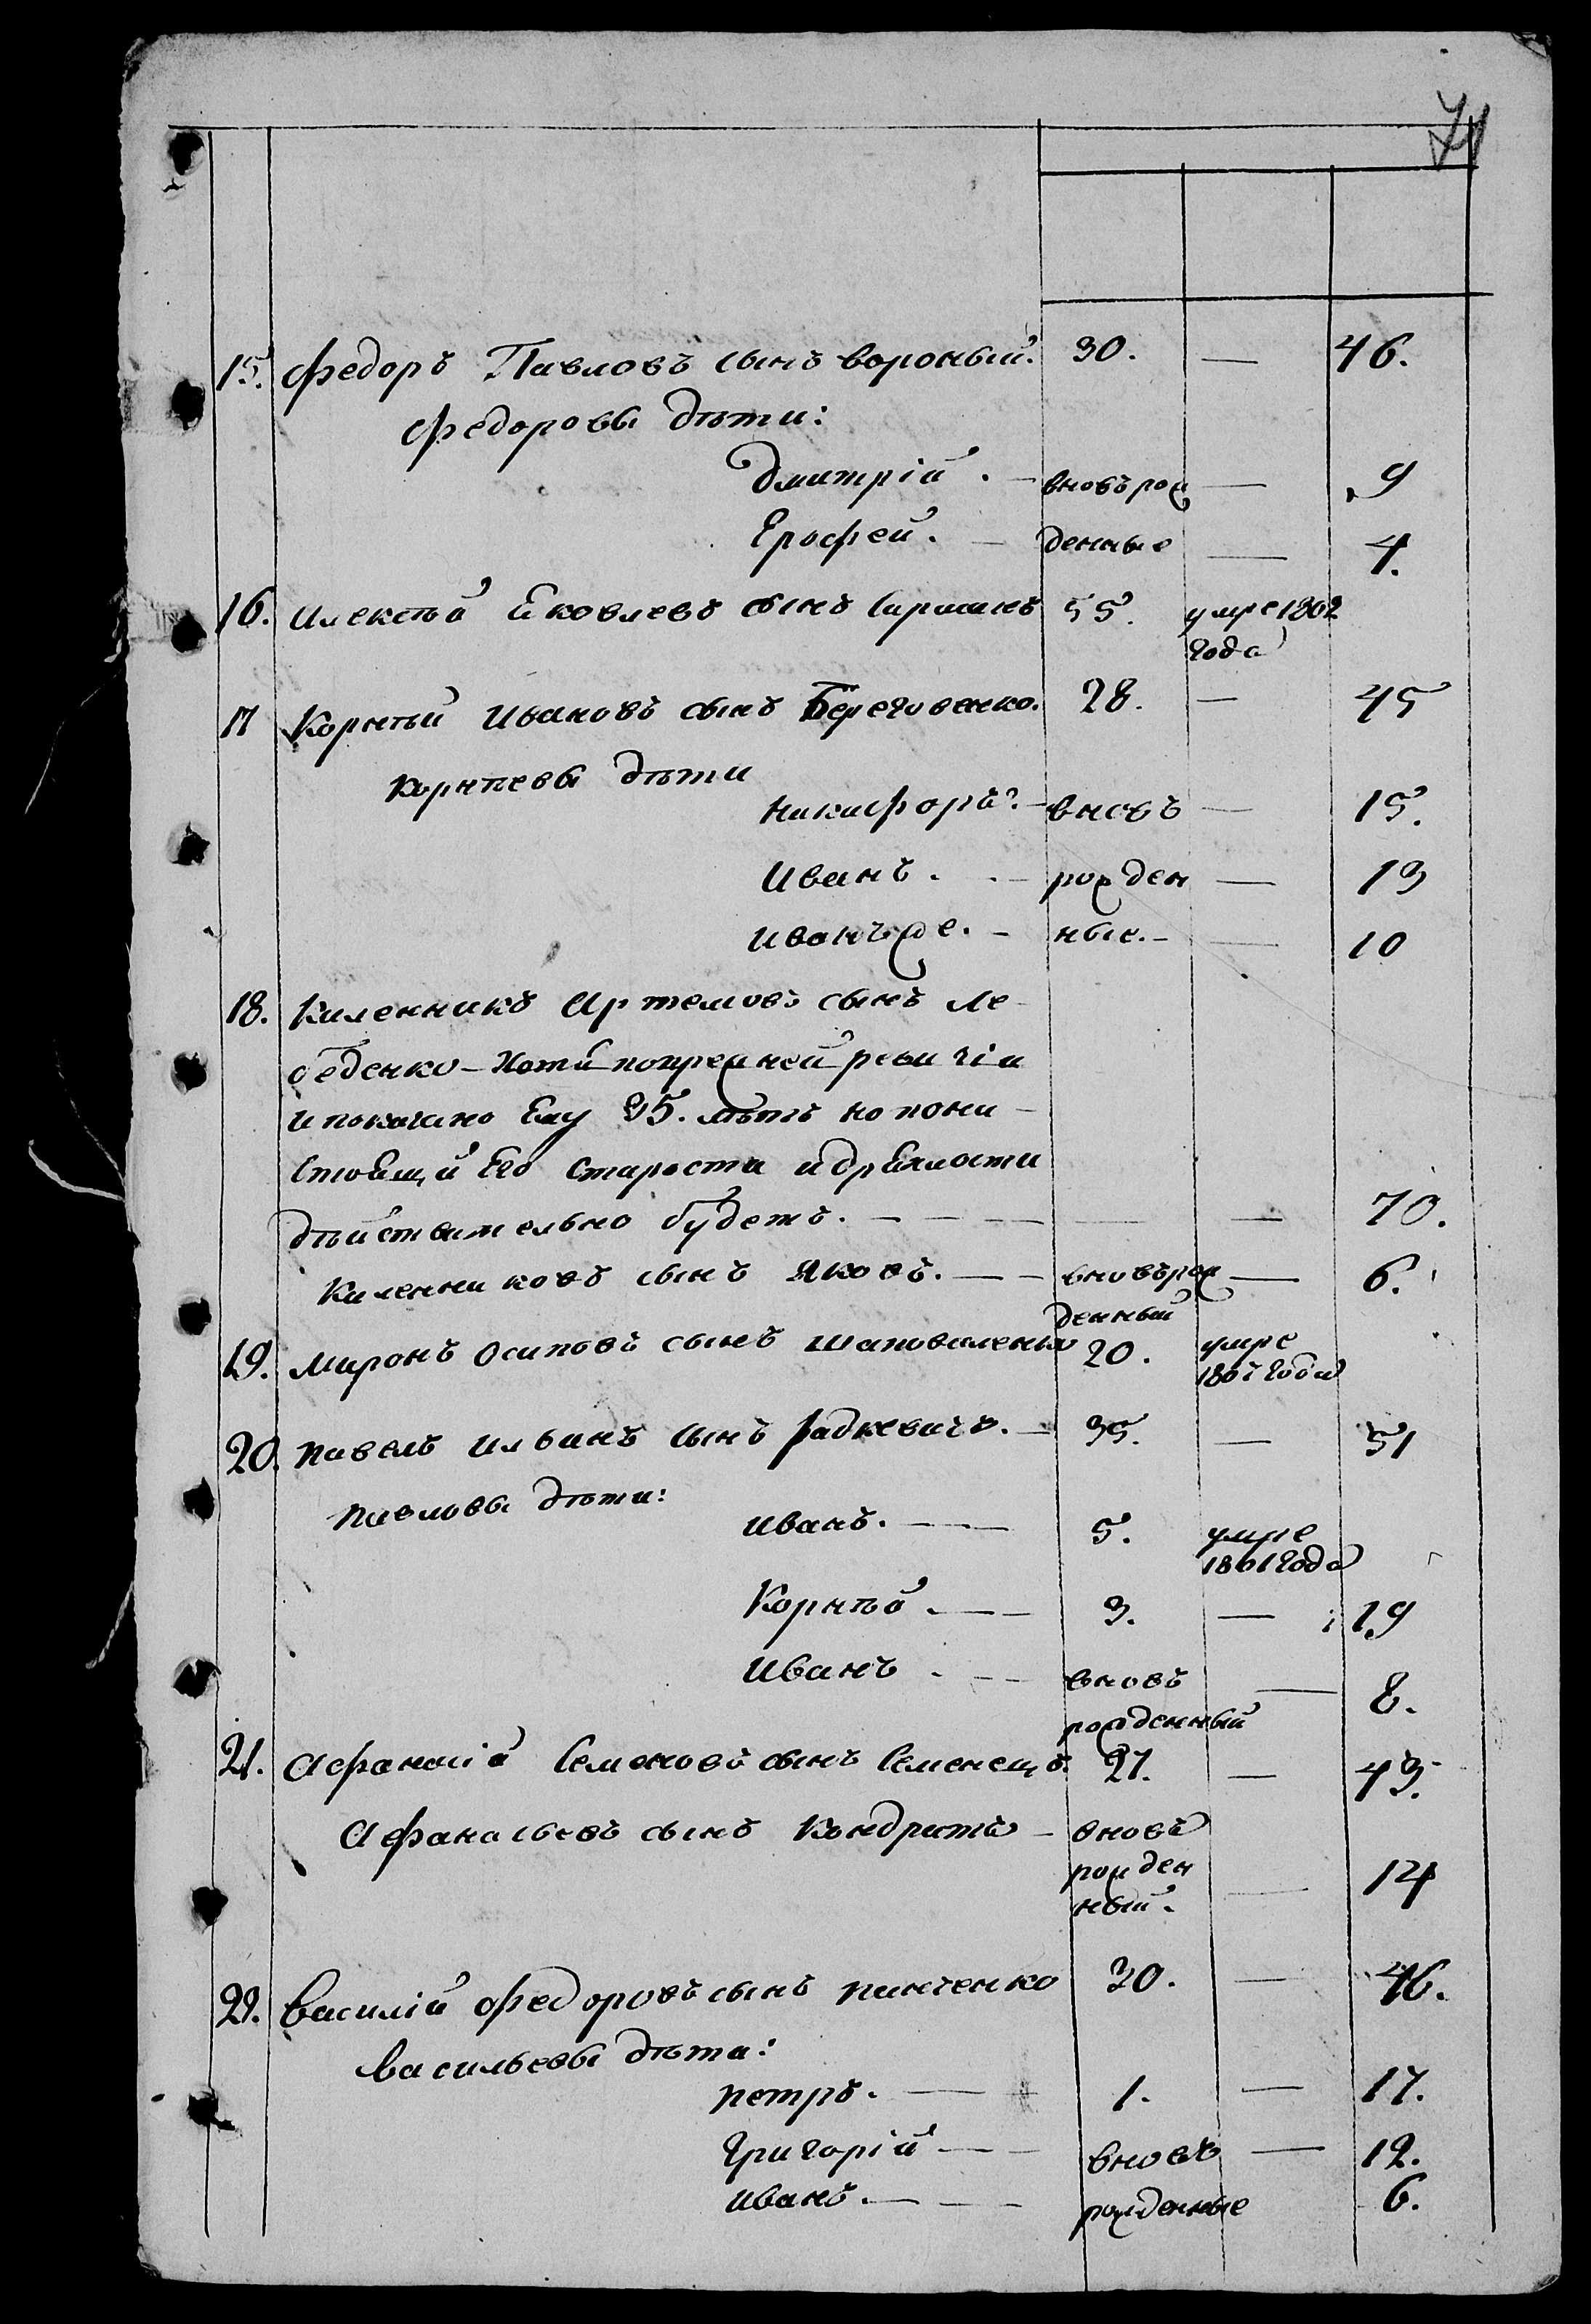 71
15. Федоръ Павловъ сынъ вороный. 30. — 46.
Федоровы дѣти:
Дмитрій. — вновърож — 9
Ерофей. — денные — 4.
16. Алексѣй Яковлевъ сынъ 55. умре 1802
года
17 Корнѣй Ивановъ сынъ Береговенко. 28. — 45
Корнѣевы дѣти
Никифоръ. — вновь — 15.
Иванъ. — рожден — 13
Иванъже. — ные. — 10
18. Каленникъ Артемовъ сынъ Ле
беденко — Хотя попрежней ревизіи
и показано Ему 35. лѣтъ но пона
стоящи Его старости идряхлости
дѣйствительно будетъ. — — — — — 70.
Каленниковъ сынъ Яковъ. — — вновърож — 6.
денный
19. Миронъ Осиповъ сынъ Шаповаленко 20. умре
1807 года
20. Павелъ Ильинъ сынъ Радкевичъ. — 35. — 51
Павловы дѣти:
Иванъ. — — 5. умре
1801 года
Корнѣй. — — 3. — 19
Иванъ. — — вновь — 8.
рожденный
21. Афанасій Семеновъ сынъ Семенецъ. 27. — 43.
Афанасьевъ сынъ Кондратъ — вновь
рожден — 14
ный.
22. Василій Федоровъ сынъ Панченко 30. — 46.
Васильевы дѣти:
Петръ. — — 1. — 17.
Григорій — — вновь — 12.
Иванъ. — — рожденные 6.